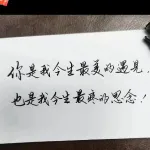 你是我今生最美的遇见，
也是我今生最疼的思念！